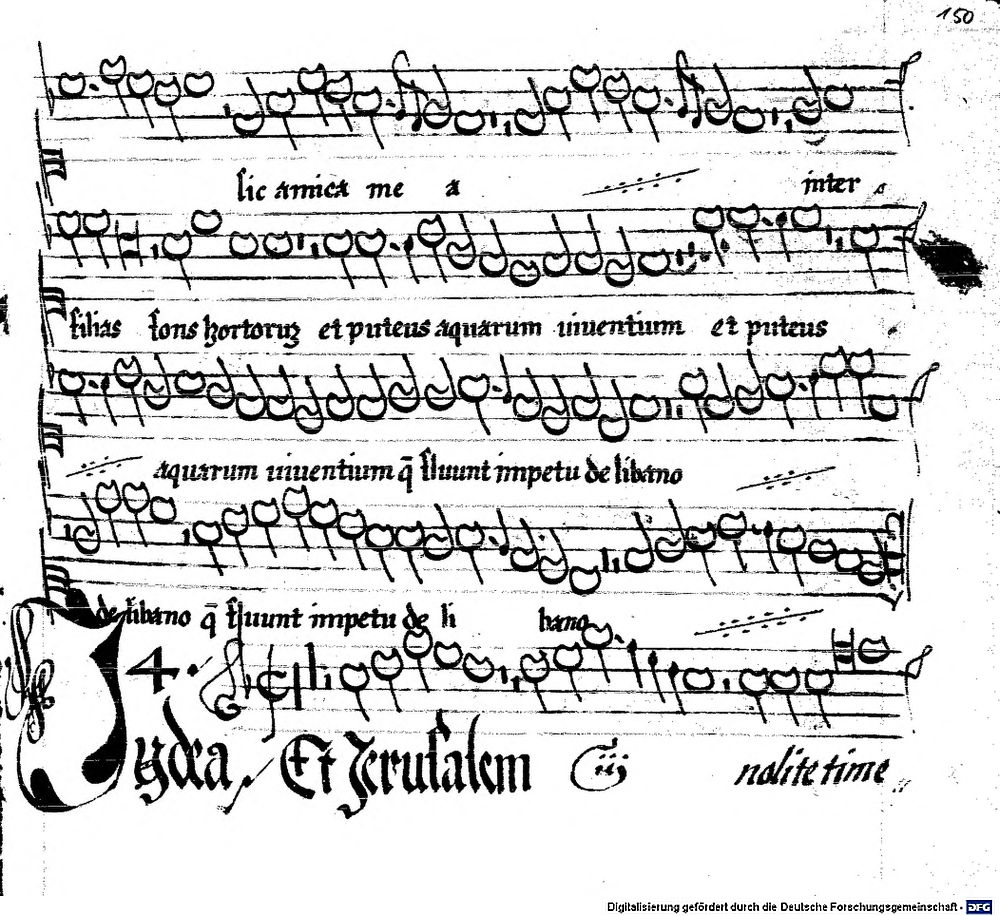 150
sic amica me a inter
filias fons hortorū et puteus aquarum uiuentium et puteus
aquarum uiuentium q̄ fluunt impetu de libano
de libano q̄ fluunt impetu de li bano
4.
Iudea Et Jerusalem nolite time
Digitalisierung gefördert durch die Deutsche Forschungsgemeinschaft - DFG